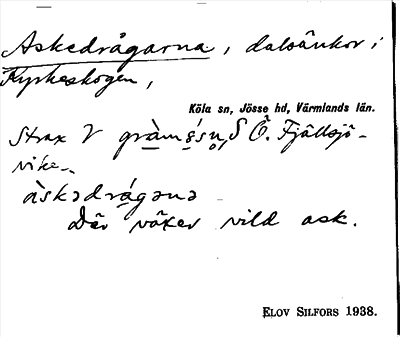 Askedrågarna, dalsänkor i
Kyrkeskogen,
Köla sn, Jösse hd, Värmlands län.
Strax V gràmśsn̥, S Ö. Fjällsjö-
vike.
àskədrágənə
Där växer vild ask.
ELOV SILFORS 1938.